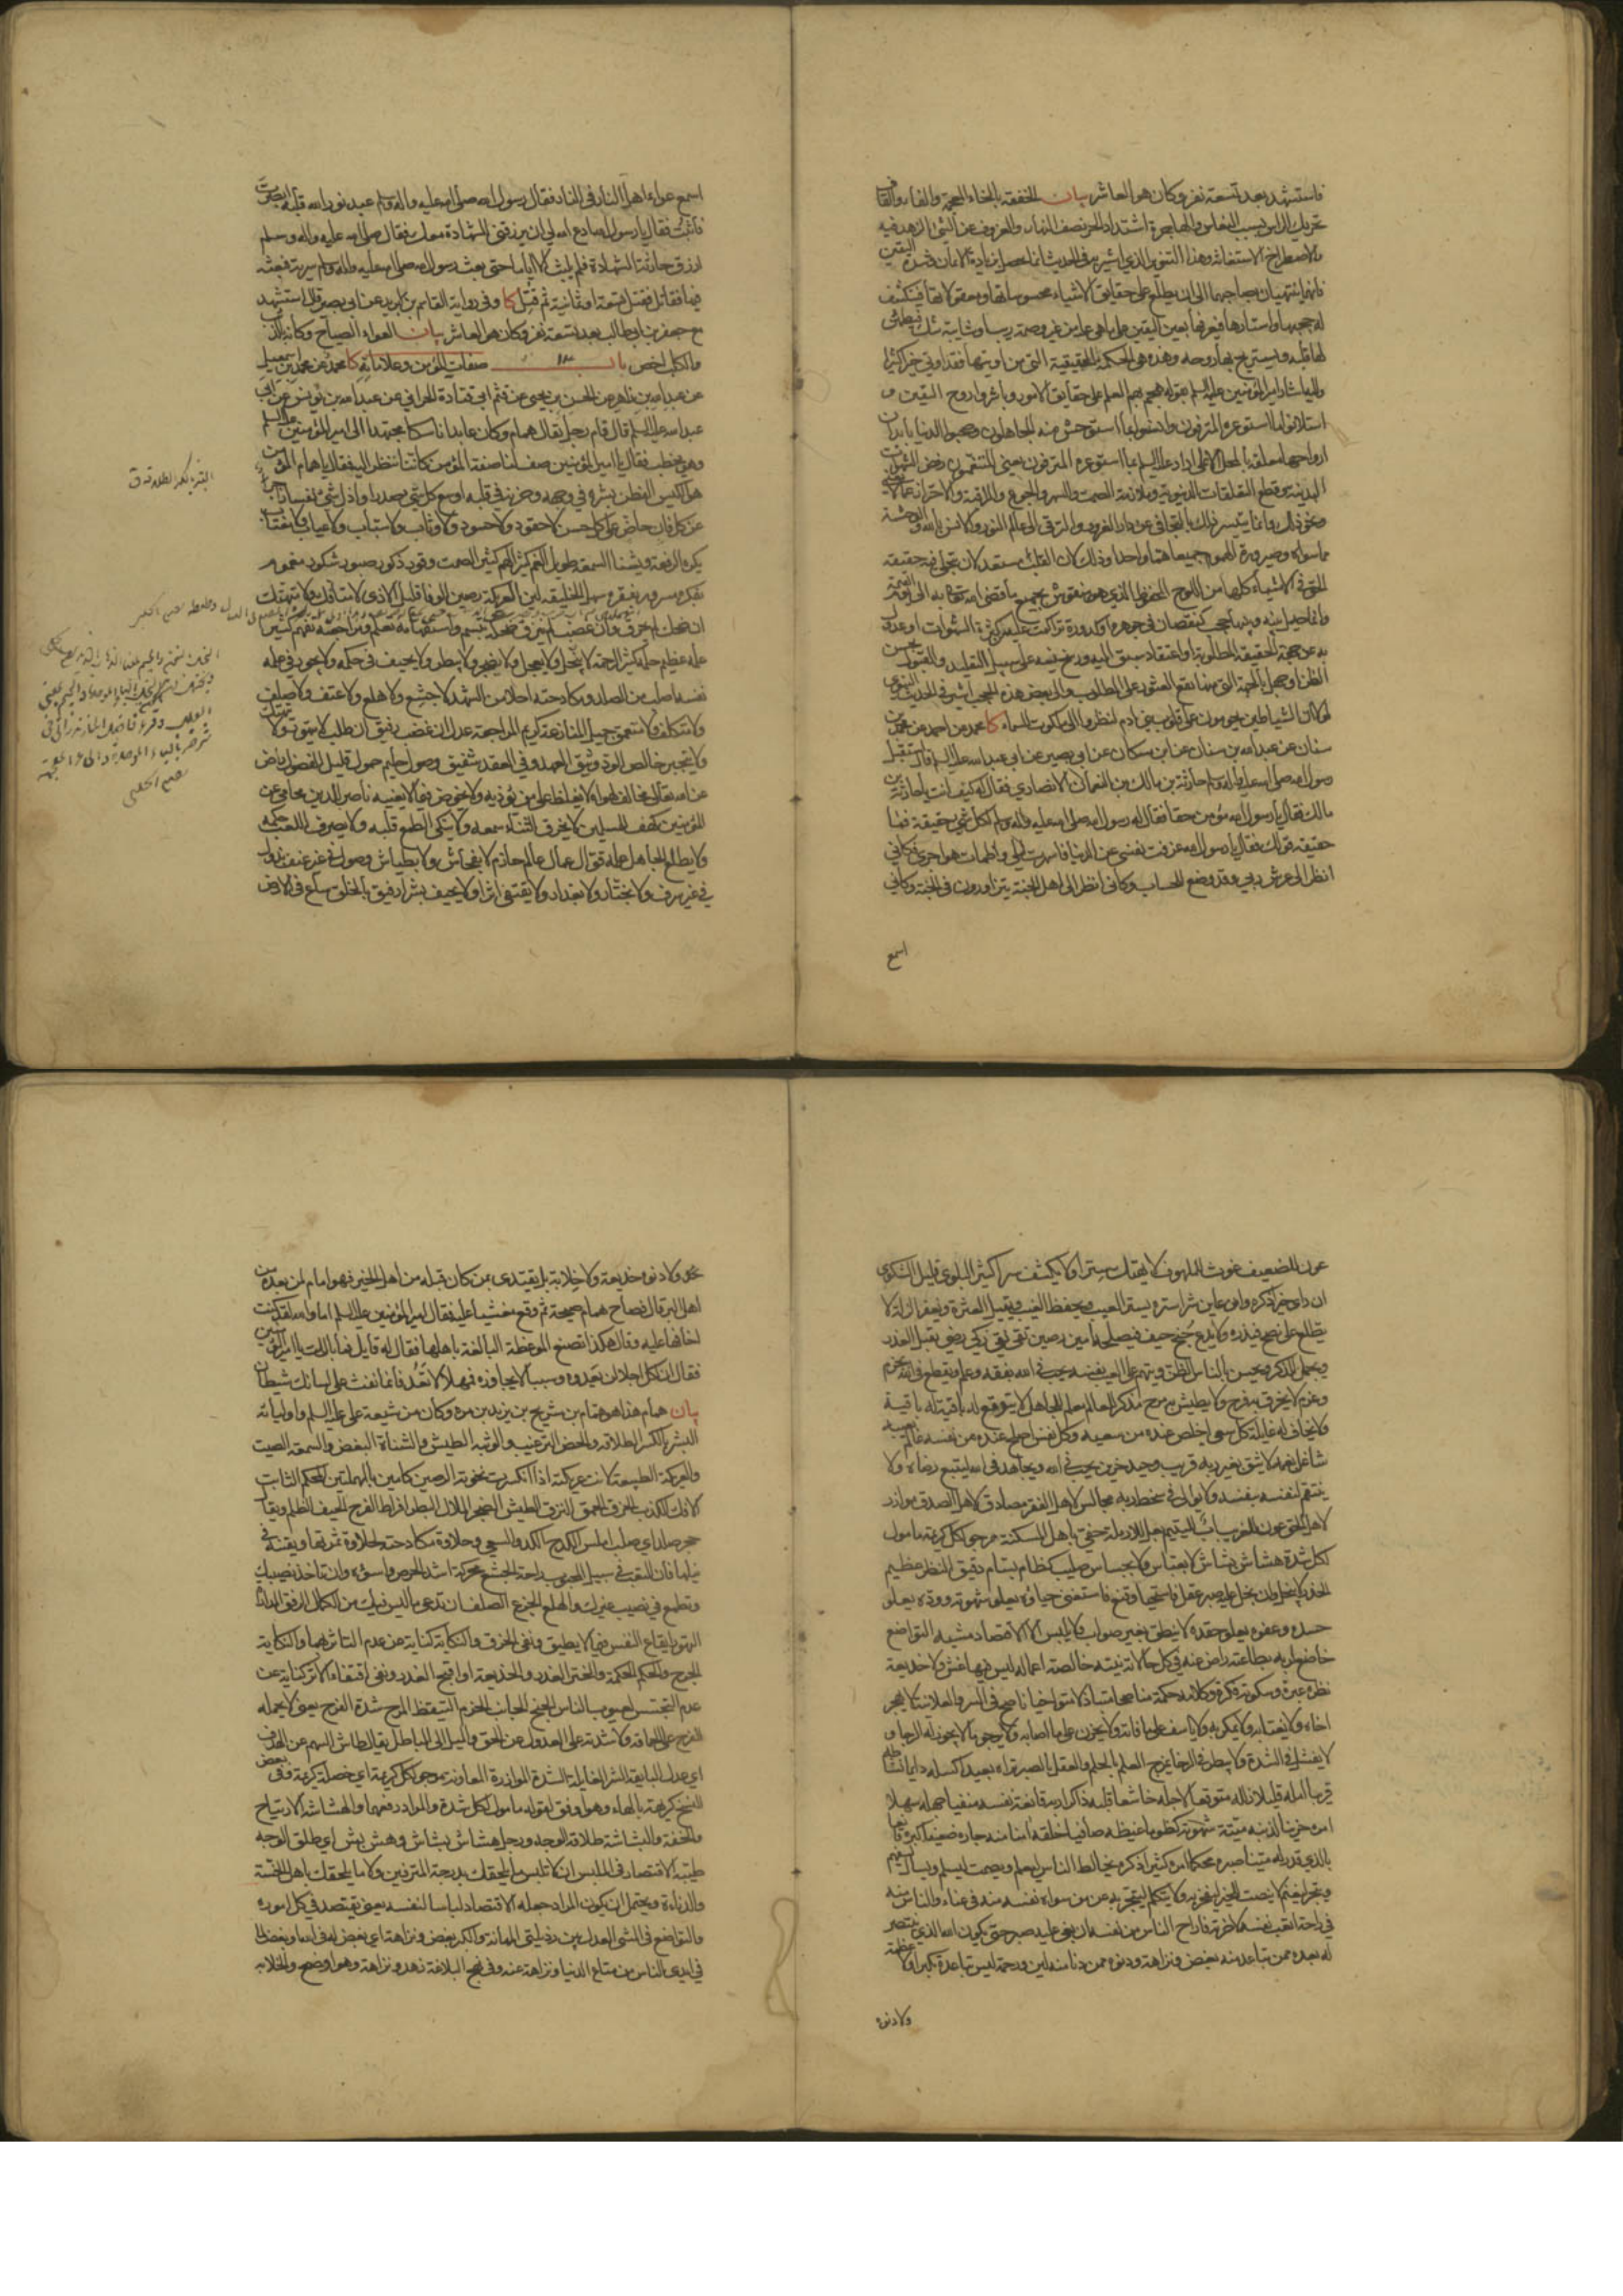 فاستشهد بعد تسعة نفر وكان هو العاشر بيان الخفقة بالخاء المعجمة والفاء والقاف
تحريك الراس بسبب النعاس والهاجرة اشتداد الحر نصف النهار والعزوف عن الشيء الزهد فيه
والاصطراخ الاستغاثة وهذا التنوير الذي اشير به في الحديث انما يحصل بزيادة الايمان وشدة اليقين
فانهما ينتهيان بصاحبهما الى ان يطلع على حقايق الاشياء محسوساتها ومعقولاتها فينكشف
له حجبها واستارها فيعرفها بعين اليقين على ما هي عليه من غير وصمة ريب او شايبة شك فيطمئن
لها قلبه ويستريح بها روحه وهذه هي الحكمة الحقيقية التي من اوتيها فقد اوتي خيرا كثيرا
واليه اشار امير المؤمنين عليه السلم بقوله هجم بهم العلم على حقايق الامور وباشروا روح اليقين و
استلانوا ما استوعره المترفون وانسوا بما استوحش منه الجاهلون وصحبوا الدنيا بابدان
ارواحها معلقة بالمحل الاعلى اراد عليه السلم بما استوعره المترفون يعني المتنعمون رفض الشهوات
البدنية وقطع التعلقات الدنيوية وملازمة الصمت والسهر والجوع والمراقبة والاحتراز عما لا يعني
ونحو ذلك وانما يتيسر ذلك بالتجافي عن دار الغرور والترقي الى عالم النور والانس بالله والوحشة
مما سواه وصيرورة الهموم جميعا هما واحدا وذلك لان القلب مستعد لان يتجلى فيه حقيقة
الحق في الاشياء كلها من اللوح المحفوظ الذي هو منقوش بجميع ما قضى الله تعالى به الى يوم القيمة
وانما حيل بينه وبينها حجب كنقصان في جوهره او كدورة تراكمت عليه من كثرة الشهوات او عدول
به عن جهة الحقيقة المطلوبة او اعتقاد سبق اليه ورسخ فيه على سبيل التقليد والقبول بحسن
الظن او جهل بالجهة التي منها يقع العثور على المطلوب والى بعض هذه الحجب اشير في الحديث النبوي
لولا ان الشياطين يحومون على قلوب بني ادم لنظروا الى ملكوت السماء كا محمد عن احمد عن محمد بن
سنان عن عبد الله بن سنان عن ابن مسكان عن ابي بصير عن ابي عبد الله عليه السلم قال استقبل
رسول الله صلى الله عليه واله وسلم حارثة بن مالك بن النعمان الانصاري فقال له كيف انت يا حارثة بن
مالك فقال يا رسول الله مؤمن حقا فقال له رسول الله صلى الله عليه واله وسلم لكل شيء حقيقة فما
حقيقة قولك فقال يا رسول الله عزفت نفسي عن الدنيا فاسهرت ليلي واظمات هواجري فكاني
انظر الى عرش ربي وقد وضع للحساب وكاني انظر الى اهل الجنة يتزاورون في الجنة وكاني
اسمع
اسمع عواء اهل النار في النار فقال رسول الله صلى الله عليه واله وسلم عبد نور الله قلبه ابصرت
فاثبت فقال يا رسول الله ادع الله لي ان يرزقني الشهادة معك فقال صلى الله عليه واله وسلم
ارزق حارثة الشهادة فلم يلبث الا اياما حتى بعث رسول الله صلى الله عليه واله وسلم سرية فبعثه
فيها فقاتل فقتل تسعة او ثمانية ثم قتل كا وفي رواية القاسم بن بريد عن ابي بصير قال استشهد
مع جعفر بن ابي طالب بعد تسعة نفر وكان هو العاشر بيان العواء الصياح وكانه بالذئب
والكلب اخص باب صفات المؤمن وعلاماته كا محمد عن محمد بن اسمعيل
عن عبد الله بن داهر عن الحسن بن يحيى عن قثم ابي قتادة الحراني عن عبد الله بن يونس عن ابي
عبد الله عليه السلم قال قام رجل يقال همام وكان عابدا ناسكا مجتهدا الى امير المؤمنين عليه السلم
وهو يخطب فقال يا امير المؤمنين صف لنا صفة المؤمن كاننا ننظر اليه فقال يا همام المؤمن
هو الكيس الفطن بشره في وجهه وحزنه في قلبه اوسع كل شيء صدرا واذل شيء نفسا زاجر
عن كل فان حاض على كل حسن لا حقود ولا حسود ولا وثاب ولا سباب ولا عياب ولا مغتاب
يكره الرفعة ويشنا السمعة طويل الغم كثير الهم كثير الصمت وقور ذكور صبور شكور مغموم
بفكره مسرور بفقره سهل الخليقة لين العريكة رصين الوفا قليل الاذى لا متافك ولا متهتك
ان ضحك لم يخرق وان غضب لم ينزق ضحكه تبسم واستفهامه تعلم ومراجعته تفهم كثير
علمه عظيم حلمه كثير الرحمة لا يبخل ولا يعجل ولا يضجر ولا يبطر ولا يحيف في حكمه ولا يجور في علمه
نفسه اصلب من الصلد ومكادحته احلى من الشهد لا جشع ولا هلع ولا عنف ولا صلف
ولا متكلف ولا متعمق جميل المنازعة كريم المراجعة عدل ان غضب رفيق ان طلب لا يتهور ولا يتهتك
ولا يتجبر خالص الود وثيق العهد وفي العقد شفيق وصول حليم حمول قليل الفضول راض
عن الله تعالى مخالف لهواه لا يغلظ على من يؤذيه ولا يخوض فيما لا يعنيه ناصر للدين محامي عن
المؤمنين كهف للمسلمين لا يخرق الثناء سمعه ولا ينكي الطمع قلبه ولا يصرف اللعب حكمه
ولا يطلع الجاهل علمه قوال عمال عالم حازم لا بفحاش ولا بطياش وصول في غير عنف بذول
في غير سرف ولا بختار ولا بغدار ولا يقتفي اثرا ولا يحيف بشرا رفيق بالخلق ساع في الارض
عون للضعيف غوث للملهوف لا يهتك سترا ولا يكشف سرا كثير البلوى قليل الشكوى
ان راى خيرا ذكره وان عاين شرا ستره يستر العيب ويحفظ الغيب ويقيل العثرة ويغفر الزلة لا
يطلع على نصح فيذره ولا يدع جنح حيف فيصلحه امين رصين تقي نقي زكي رضي يقبل العذر
ويجمل الذكر ويحسن بالناس الظن ويتهم على العيب نفسه يحب في الله بفقه وعلم ويقطع في الله بحزم
وعزم لا يخرق به فرح ولا يطيش به مرح مذكر للعالم معلم للجاهل لا يتوقع له بايقة
ولا يخاف له غايلة كل سعي اخلص عنده من سعيه وكل نفس اصلح عنده من نفسه عالم بعيبه
شاغل بغمه لا يثق بغير ربه قريب وحيد حزين يحب في الله ويجاهد في الله ليتبع رضاه ولا
ينتقم لنفسه بنفسه ولا يوالي في سخط ربه مجالس لاهل الفقر مصادق لاهل الصدق موازر
لاهل الحق عون للغريب اب لليتيم بعل للارملة حفي باهل المسكنة مرجو لكل كريهة مامول
لكل شدة هشاش بشاش لا بعباس ولا بجساس صليب كظام بسام دقيق النظر عظيم
الحذر لا يبخل وان بخل عليه صبر عقل فاستحيا وقنع فاستغنى حياؤه يعلو شهوته ووده يعلو
حسده وعفوه يعلو حقده لا ينطق بغير صواب ولا يلبس الا الاقتصاد مشيه التواضع
خاضع لربه بطاعته راض عنه في كل حالاته نيته خالصة اعماله ليس فيها غش ولا خديعة
نظره عبرة وسكوته فكرة وكلامه حكمة مناصحا متباذلا متواخيا ناصح في السر والعلانية لا يهجر
اخاه ولا يغتابه ولا يمكر به ولا ياسف على ما فاته ولا يحزن على ما اصابه ولا يرجو ما لا يجوز له الرجا و
لا يفشل في الشدة ولا يبطر في الرخا يمزج العلم بالحلم والعقل بالصبر تراه بعيدا كسله دايما نشاطه
قريبا امله قليلا زلله متوقعا لاجله خاشعا قلبه ذاكرا ربه قانعة نفسه منفيا جهله سهلا
امره حزينا لذنبه ميتة شهوته كظوما غيظه صافيا خلقه امنا منه جاره ضعيفا كبره قانعا
بالذي قدر له متينا صبره محكما امره كثيرا ذكره يخالط الناس ليعلم ويصمت ليسلم ويسال ليفهم
ويتجر ليغنم لا ينصت للخير ليفخر به ولا يتكلم ليتجبر به على من سواه نفسه منه في عناء والناس منه
في راحة اتعب نفسه لاخرته فاراح الناس من نفسه ان بغي عليه صبر حتى يكون الله الذي ينتصر
له بعده ممن تباعد منه بغض ونزاهة ودنوه ممن دنا منه لين ورحمة ليس تباعده تكبرا ولا عظمة
ولا دنوه
ولا دنوه خديعة ولا خلابة بل يقتدي بمن كان قبله من اهل الخير فهو امام لمن بعده من
اهل البر قال فصاح همام صيحة ثم وقع مغشيا عليه فقال امير المؤمنين عليه السلم اما والله لقد كنت
اخافها عليه وقال هكذا تصنع الموعظة البالغة باهلها فقال له قايل فما بالك يا امير المؤمنين
فقال ان لكل اجلا لن يعدوه وسببا لا يجاوزه فمهلا لا تعد فانما نفث على لسانك شيطان
بيان همام هذا هو همام بن شريح بن يزيد بن مرة وكان من شيعة علي عليه السلم واوليائه
البشر بالكسر الطلاقة والحض الترغيب والوثبة الطيش والشناة البغض والسمعة الصيت
والعريكة الطبيعة لانت عريكته اذا انكسرت نخوته الرصين كامين بالمهملتين المحكم الثابت
الافك الكذب الخرق الحمق النزق الطيش الضجر الملال البطر افراط الفرح الحيف الظلم ويقال
حجر صلد اي صلب املس الكدح الكد والسعي وحلاوة مكادحته لحلاوة ثمرتها
فان التعب في سبيل المحبوب راحة الجشع محركة اشد الحرص واسوؤه وان تاخذ نصيبك
وتطمع في نصيب غيرك والهلع الجزع الصلف ان تدعي ما ليس فيك من الكمال
التهور ايقاع النفس فيما لا يطيق ونفي الخرق والنكاية كناية عن عدم التاثر بهما والنكاية
الجرح والحكم الحكمة والختر الغدر والخديعة او اقبح الغدر ونفي اقتفاء الاثر كناية عن
عدم التجسس لعيوب الناس الجنح الجانب الحزم التيقظ المرح شدة الفرح يعني لا يحمله
الفرح على الخفة ولا شدته على العدول عن الحق والميل الى الباطل يقال طاش السهم عن الهدف
اي عدل البايقة الشر الغايلة الشدة الموازرة المعاونة مرجو لكل كريهة اي خصلة كريهة وفي بعض
النسخ كريمة وهو اوفق لقوله مامول لكل شدة والمراد رفعهما والهشاشة الارتياح
والخفة والبشاشة طلاقة الوجه ورجل هشاش بشاش وهش بش اي طلق الوجه
طيبه الاقتصاد في الملابس ان لا تلبس ما يلحقك بدرجة المترفين ولا ما يلحقك باهل الخسة
والدناءة ويحتمل ان يكون المراد جعله الاقتصاد لباسا لنفسه يعني يقتصد في كل اموره
والتواضع في المشي العدل بين رذيلتي المهانة والكبر بغض ونزاهة اي بغض له في الله وبغض لما
في ايدي الناس من متاع الدنيا ونزاهة عنه وفي نهج البلاغة زهد ونزاهة وهو اوضح والخلابة